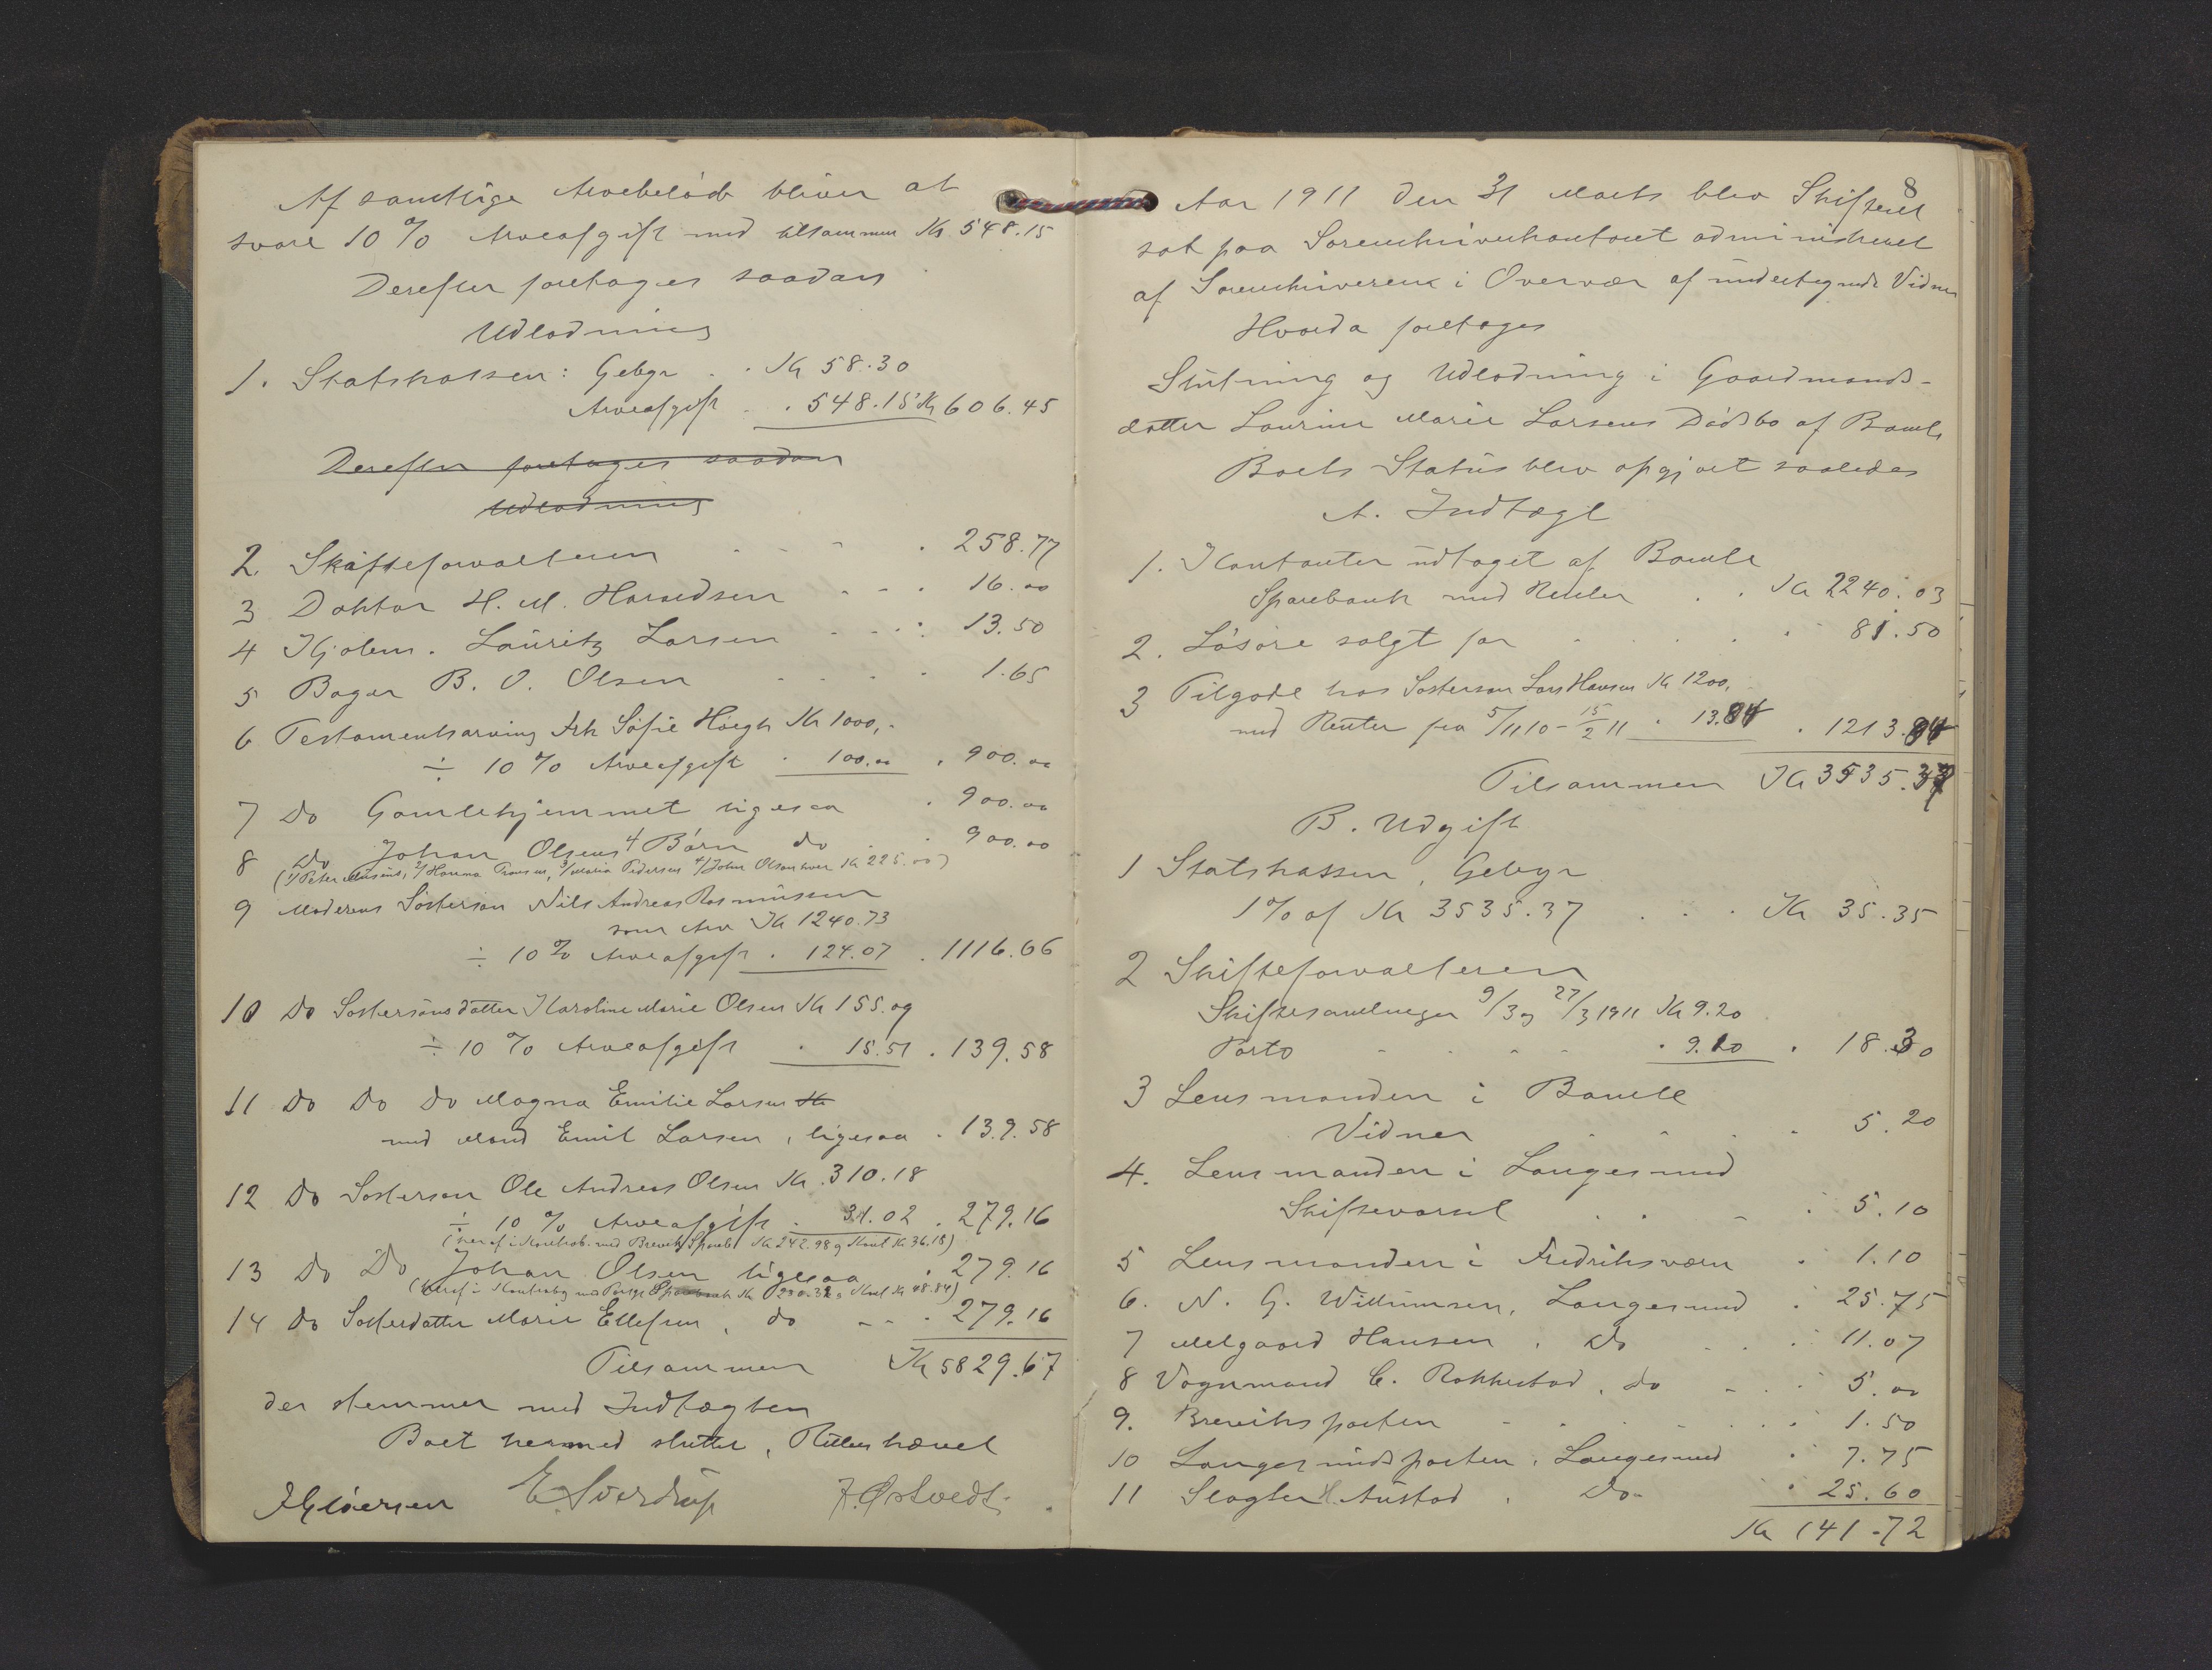 Af samtlige Arvebeløb bliver at
svare 10 % Arveafgift med tilsammen Kr. 548.15
Derefter foretages saadan
Udlodning
1. Statskassen: Gebyr . . Kr 58.30
Arveafgift . . 548.15 Kr 606.45
Derefter foretages saadan
Udlodning
2. Skifteforvalteren - - - . 258.77
3 Doktor H. M. - - . 16.00
4 Kjølem. Lauritz Larsen - - . 13.50
5 Bager B. O. Olsen - - - - . 1.65
6 Testamentsarving Frk Sofie Høegh Kr 1000,-
÷ 10 % Arveafgift . 100.00 . 900.00
7 Do Gamlehjemmet ligesaa . 900.00
8 Do Johan Olsens 4 Børn do . . 900.00
(1/ Peter 2/ Hanna 3/ Maria Pedersen 4/ John Olsen hver Kr 225.00)
9 Moderens Søstersøn Nils Andreas Rasmussen
som Arv Kr 1240.73
÷ 10 % Arveafgift . 124.07 . 1116.66
10 Do Søstersønsdatter Karoline Marie Olsen Kr 155.09
÷ 10 % Arveafgift . 15.51 . 139.58
11 Do Do Do Magna Emilie Larsen Kr
med Mand Emil Larsen, ligesaa . 139.58
12 Do Søstersøn Ole Andreas Olsen Kr. 310.18
÷ 10 % Arveafgift . 31.02 . 279.16
(heraf i Kontrabog med Brevik Spareb. Kr 242.98 og Kont Kr 36.18)
13 Do Do Johan Olsen ligesaa . 279.16
(heraf i Kontrabog med Sparebank Kr 230.32 og Kont Kr 48.84)
14 Do Søsterdatter Marie Ellefsen, do - - . 279.16
Tilsammen Kr 5829.67
der stemmer med Indtægten
Boet hermed sluttet, Retten hævet
E. Sverdrup J. Østvedt
8
Aar 1911 den 31 Marts blev Skifteret
sat paa Sorenskriverkontoret administreret
af Sorenskriveren i Overvær af undertegnede Vidner
Hvorda foretages
Slutning og Udlodning i Gaardmands-
datter Laurine Marie Larsens Dødsbo af Bamle
Boets Status blev opgjort saaledes
A. Indtægt
1. Kontanter udtaget af Bamle
Sparebank med Renter . . Kr 2240.03
2. Løsøre solgt for . . . . . 81.50
3 Tilgode hos Søstersøn Lars Hansen Kr 1200,
med Renter fra 5/11 10 - 15/2 11 . 13.84 . 1213.84
Tilsammen Kr 3535.37
B. Udgift
1 Statskassen, Gebyr
1 % af Kr 3535.37 . . . Kr 35.35
2 Skifteforvalteren
Skiftesamlinger 9/3 og 27/3 1911 Kr 9.20
Porto - - - - . 9.10 . 18.30
3 Lensmanden i Bamle
Vidner . - . . 5.20
4. Lensmanden i Langesund
Skiftevarsel . . - . 5.10
5 Lensmanden i Fredriksværn . 1.10
6. N. G. Willumsen, Langesund . 25.75
7 Melgaard Hansen, Do . . . 11.07
8 Vognmand C. Rakkestad, do - . . 5.00
9. Breviksposten - . . - . . 1.50
10 Langesundsposten, Langesund . 7.75
11 Slagter H. Austad, Do . 25.60
Kr 141.72